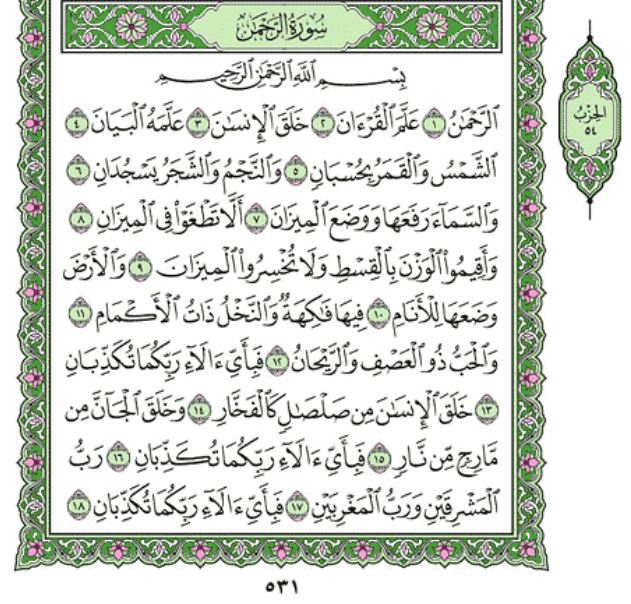 سُورَةُ الرَّحْمَٰن
بِسْمِ اللَّهِ الرَّحْمَٰنِ الرَّحِيمِ
الرَّحْمَٰنُ ١ عَلَّمَ الْقُرْءَانَ ٢ خَلَقَ الْإِنسَٰنَ ٣ عَلَّمَهُ الْبَيَانَ ٤
الشَّمْسُ وَالْقَمَرُ بِحُسْبَانٍ ٥ وَالنَّجْمُ وَالشَّجَرُ يَسْجُدَانِ ٦
وَالسَّمَآءَ رَفَعَهَا وَوَضَعَ الْمِيزَانَ ٧ أَلَّا تَطْغَوْا۟ فِى الْمِيزَانِ ٨
وَأَقِيمُوا۟ الْوَزْنَ بِالْقِسْطِ وَلَا تُخْسِرُوا۟ الْمِيزَانَ ٩ وَالْأَرْضَ
وَضَعَهَا لِلْأَنَامِ ١٠ فِيهَا فَٰكِهَةٌ وَالنَّخْلُ ذَاتُ الْأَكْمَامِ ١١
وَالْحَبُّ ذُو الْعَصْفِ وَالرَّيْحَانُ ١٢ فَبِأَىِّ ءَالَآءِ رَبِّكُمَا تُكَذِّبَانِ
١٣ خَلَقَ الْإِنسَٰنَ مِن صَلْصَٰلٍ كَالْفَخَّارِ ١٤ وَخَلَقَ الْجَآنَّ مِن
مَّارِجٍ مِّن نَّارٍ ١٥ فَبِأَىِّ ءَالَآءِ رَبِّكُمَا تُكَذِّبَانِ ١٦ رَبُّ
الْمَشْرِقَيْنِ وَرَبُّ الْمَغْرِبَيْنِ ١٧ فَبِأَىِّ ءَالَآءِ رَبِّكُمَا تُكَذِّبَانِ ١٨
الحِزْبُ
٥٤
٥٣١